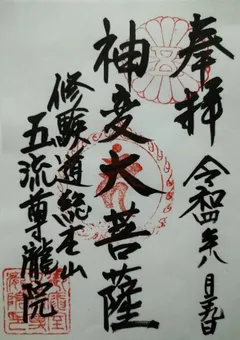 奉拝
令和四年八月吉日
神変大菩薩
修験道総本山
五流尊瀧院